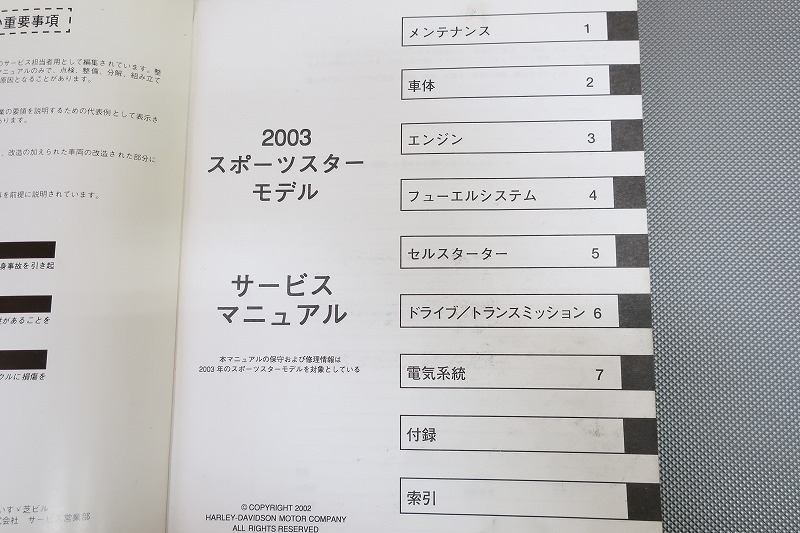 い重要事項
のサービス担当者用として編集されています。整
マニュアルのみで、点検、整備、分解、組み立て
原因となることがあります。
業の要領を説明するための代表例として表示さ
あります。
、改造の加えられた車両の改造された部分に
を前提に説明されています。
身事故を引き起
があることを
クルに損傷を
いすゞ芝ビル
式会社 サービス営業部
2003
スポーツスター
モデル
サービス
マニュアル
本マニュアルの保守および修理情報は
2003 年のスポーツスターモデルを対象としている
© COPYRIGHT 2002
HARLEY-DAVIDSON MOTOR COMPANY
ALL RIGHTS RESERVED
メンテナンス 1
車体 2
エンジン 3
フューエルシステム 4
セルスターター 5
ドライブ/トランスミッション 6
電気系統 7
付録
索引